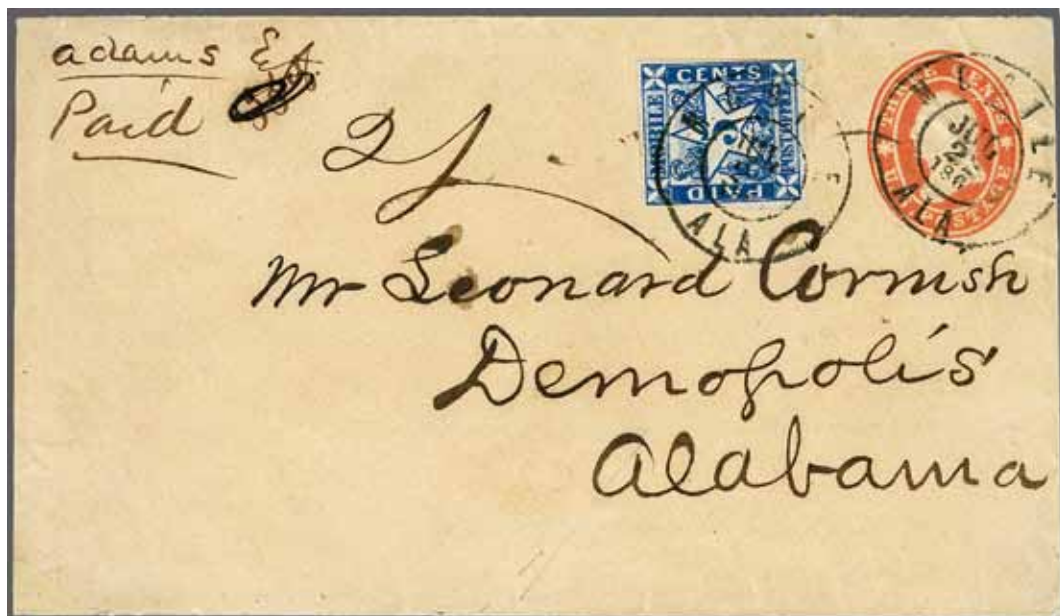 adams Ex
Paid
2/
CENTS
MOBILE
5
POST OFFICE
PAID
MOBILE
ALA
THREE CENTS
U.S. POSTAGE
MOBILE
JUL
2
186
ALA
Mr Leonard Cornish
Demopolis
Alabama